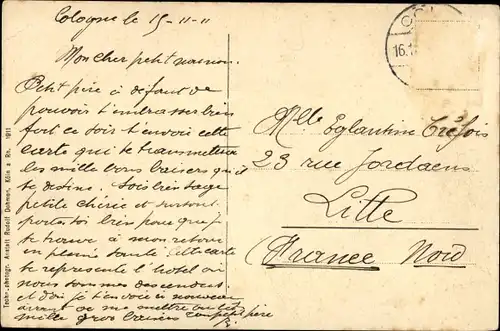 Cologne le 15-11-11
Mon cher petit
Petit père à défaut de
pouvoir t'embrasser bien
fort ce soir t'envoie cette
carte qui te transmettra
les mille bons baisers qu'il
te destine. Sois bien sage
petite chérie et surtout
portes toi bien pour que je
te trouve à mon retour
en pleine santé. Cette carte
te représente l'hôtel où
nous sommes descendus
et d'où je t'envoie à nouveau
avant de me mettre au lit
mille gros baisers ton petit père
Mlle Eglantine Tréfois
23 rue Jordaens
Lille
(France Nord)
16.1
Techn.-photogr. Anstalt Rudolf Dohmen, Köln a. Rh. 1911